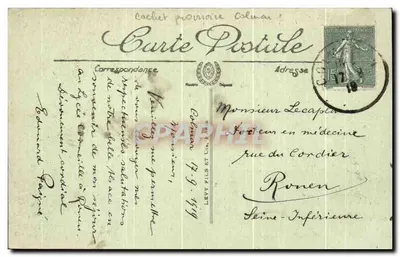 Cachet provisoire Colmar !
Carte Postale
Correspondance
Adresse
Colmar 17-9-1919
Monsieur,
Veuillez me permettre
de vous envoyer mes
respectueuses salutations
de notre belle Alsace en
souvenir de mon séjour
au Lycée Corneille à Rouen
Dévouement cordial
Edouard
LEVY FILS ET
Monsieur Lecaplain
Docteur en médecine
rue du Cordier
Rouen
Seine-Inférieure
17
19
CPHARTI